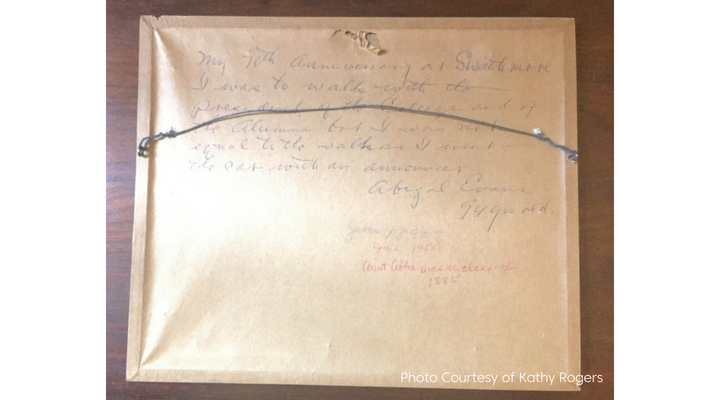 My 70th Anniversary at Swarthmore
I was to walk with the
president of the College and of
the Alumni but I was not
equal to the walk so I went
the car with an announcer
Abigail Evans
94 yrs old
June
June 1955
Aunt Abbie was in class of
1885
Photo Courtesy of Kathy Rogers